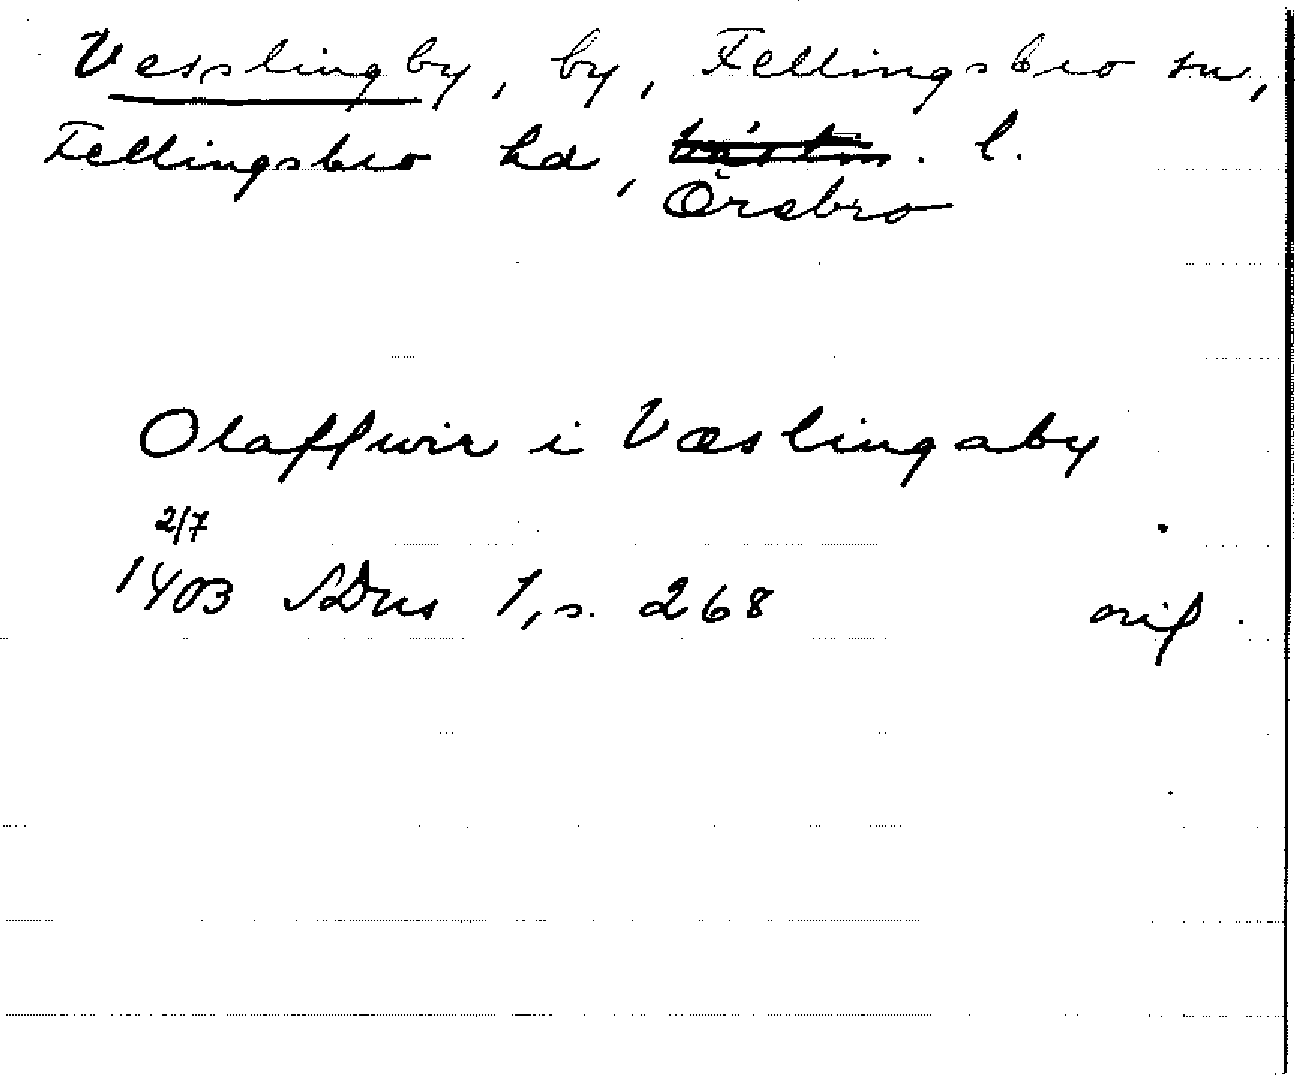 Vesslingby, by, Fellingsbro sn,
Fellingsbro hd, l.
Örebro
Olaffwir i Væslingaby
2/7
1403 SDns 1, s. 268 orig